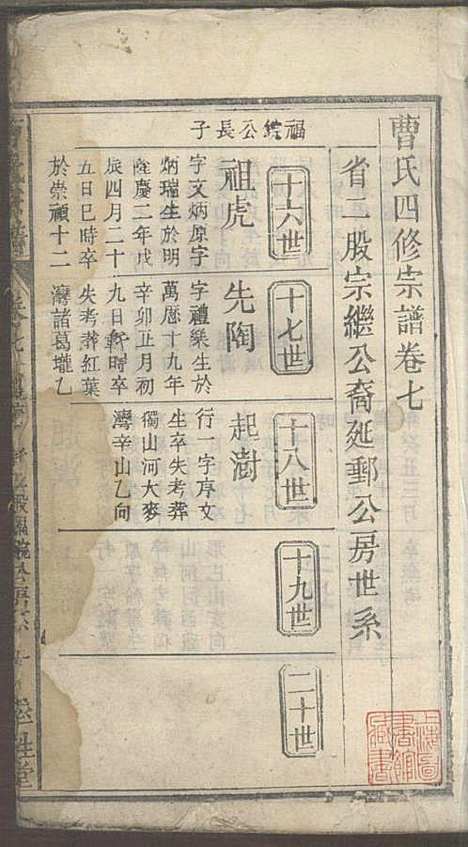 曹氏四修宗譜卷七
省二股宗繼公裔延郵公房世系
福公長子
十六世
祖虎
字文炳原字
炳瑞生於明
隆慶二年戊
辰四月二十
五日巳時卒
於崇禎十二
十七世
先陶
字禮樂生於
萬曆十九年
辛卯五月初
九日時卒
失考葬紅葉
灣諸葛壠乙
十八世
起澍
行一字序文
生卒失考葬
獨山河大麥
灣辛山乙向
十九世
二十世
上海圖書館藏書
卷七